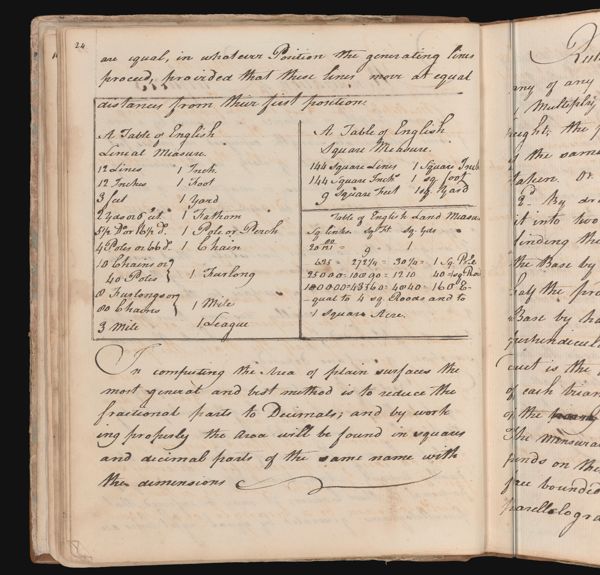 24
are equal, in whatever Position the generating lines
proceed, provided that these lines move at equal
distances from their first position.
A Table of English
Lineal Measure.
12 Lines 1 Inch
12 Inches 1 Foot
3 feet 1 yard
2 yds or 6 feet 1 Fathom
5½ Do or 16½ d. 1 Pole or Perch
4 Poles or 66 d. 1 Chain
10 Chains or
40 Poles 1 Furlong
8 Furlongs or
80 Chains 1 Mile
3 Mile 1 League
A Table of English
Square Measure.
144 Square Lines 1 Square Inch
144 Square Inch 1 sq. foot
9 Square Feet 1 sq. Yard
Table of English Land Measure
Sq. Links Sq. Ft Sq. yds
9 1
625 = 272¼ = 30¼ = 1 Sq. Pole
25000 = 10890 = 1210 40 = sq. Roo
100000 = 43560 = 4840 = 160 E-
qual to 4 sq. Roods and to
1 Square Acre.
In computing the Area of plain surfaces the
most general and best method is to reduce the
fractional parts to Decimals; and by work
ing properly the Area will be found in squares
and decimal parts of the same name with
the dimensions
Rul
any of any
Multiply
height; the p
the same
taken. or
2d. By dr
it into two
finding the
the Base by
half the pr
Base by ha
perpendicul
duct is the
of each trian
of the
The mensura
pends on the
are bounded
parellelogra